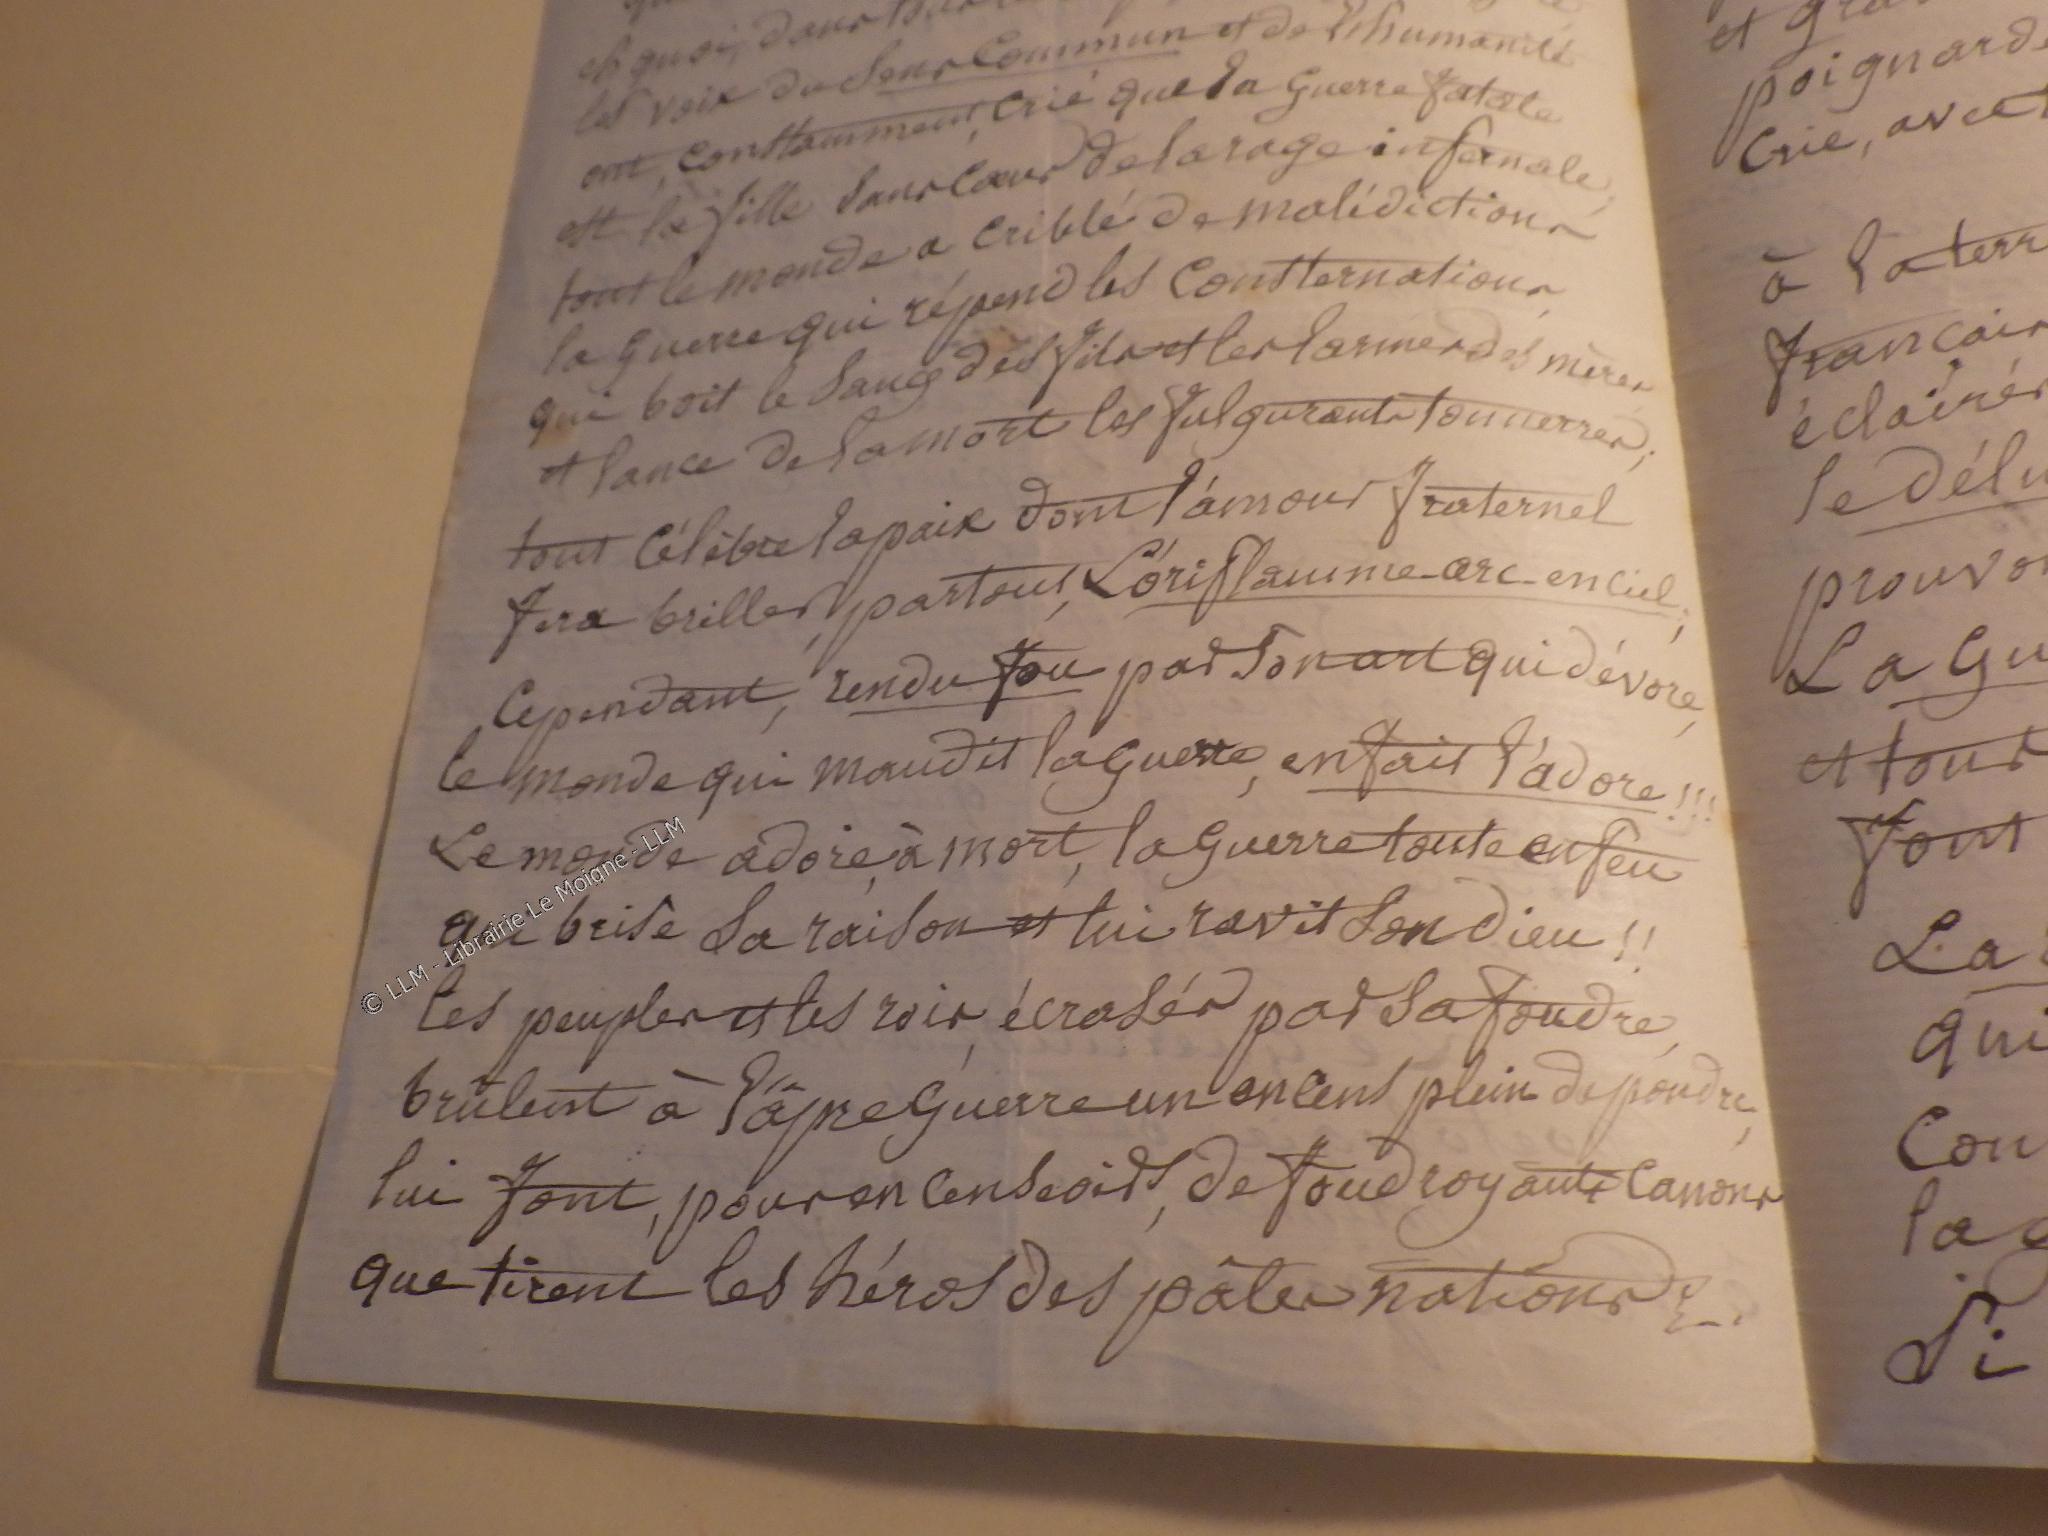 eh quoi, dans
les voix du Sens Commun et de l'humanité
ont, constamment, crié que la guerre fatale
est la fille sans cœur de la rage infernale;
tout le monde a criblé de malédictions
la guerre qui répend les consternations,
qui boit le sang des fils et les larmes des mères
et lance de la mort les fulgurants tonnerres;
tout célèbre la paix dont l'amour fraternel
fera briller, partout, L'oriflamme-arc-en ciel;
Cependant, rendu fou par son art qui dévore,
le monde qui maudit la guerre, en fait l'adore!!!
Le monde adore, à mort, la guerre toute en feu
qui brise sa raison et lui ravit son dieu!!
les peuples et les rois, écrasés par sa foudre,
brûlent à l'âpre guerre un encens plein de poudre,
lui font, pour encensoirs, de foudroyants canons
que tirent les héros des pâles nations
et
poignard
Crie, avec
à la terr
français
éclairés
le délu
prouvo
La Gu
et tour
font
La
qui
Con
la g
Si
© LLM - Librairie Le Moigne - LLM